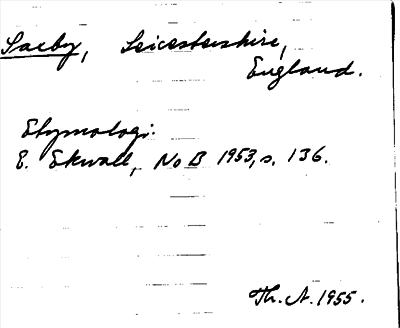 Saxby, Leicestershire,
England.
Etymologi:
E. Ekwall, NoB 1953, s. 136.
Th. A. 1955.